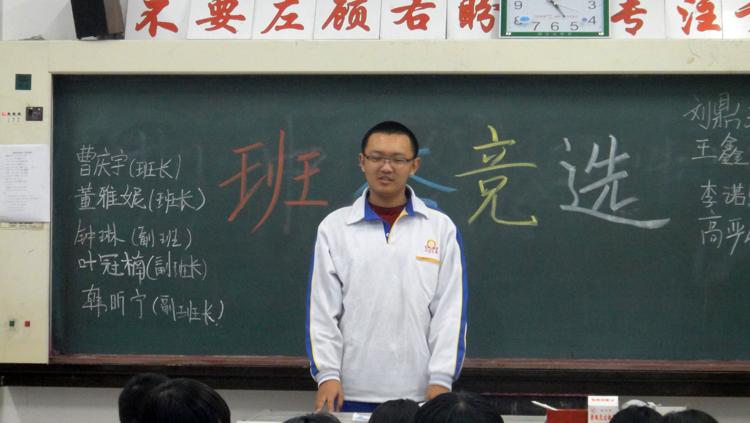 不要左顾右盼 专注
班 竞选
曹庆宇(班长)
董雅妮(班长)
钟琳(副班)
叶冠楠(副班长)
韩昕宁(副班长)
刘鼎
王鑫
李诺
高严